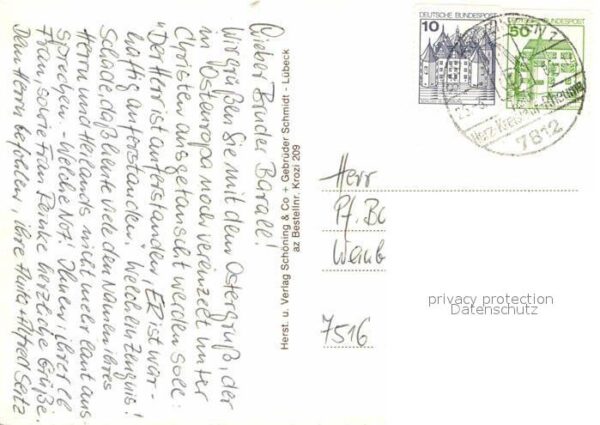 Lieber Bruder Barall!
wir grüßen Sie mit dem Ostergruß, der
in Osteuropa noch vereinzelt unter
Christen ausgetauscht werden soll:
"Der Herr ist auferstanden, ER ist wahr-
haftig auferstanden. Welch ein Zeugnis!
Schade, daß heute viele den Namen ihres
Herrn und Heilands nicht mehr laut aus-
sprechen - Welche Not! Ihnen, ihrer lb
Frau, sowie Frau herzliche Grüße.
Dem Herrn befohlen, ihre + Alfred
Herst. u. Verlag Schöning & Co + Gebrüder Schmidt - Lübeck
az Bestellnr. Krozi 209
10
DEUTSCHE BUNDESPOST
50
7812
Herr
Pf. Ba
Weinb
7516
privacy protection
Datenschutz